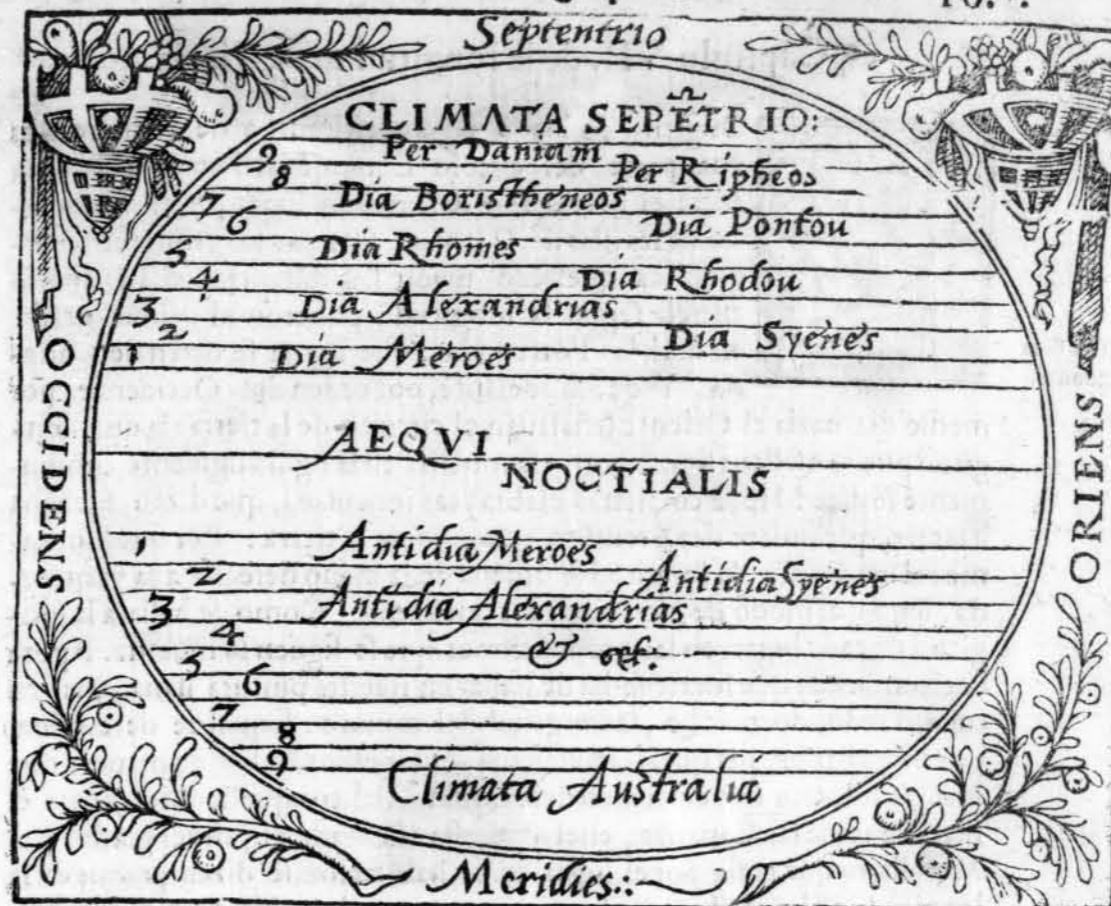 Septentrio
CLIMATA SEPĒTRIO:
9 Per Daniam
8 Per Ripheos
7 Dia Boristheneos
6 Dia Pontou
5 Dia Rhomes
4 Dia Rhodou
3 Dia Alexandrias
2 Dia Syenes
1 Dia Meroes
OCCIDENS
ORIENS
AEQVI
NOCTIALIS
1 Antidia Meroes
2 Antidia Syenes
3 Antidia Alexandrias
4
5
6
7
8
9
Climata Australia
Meridies